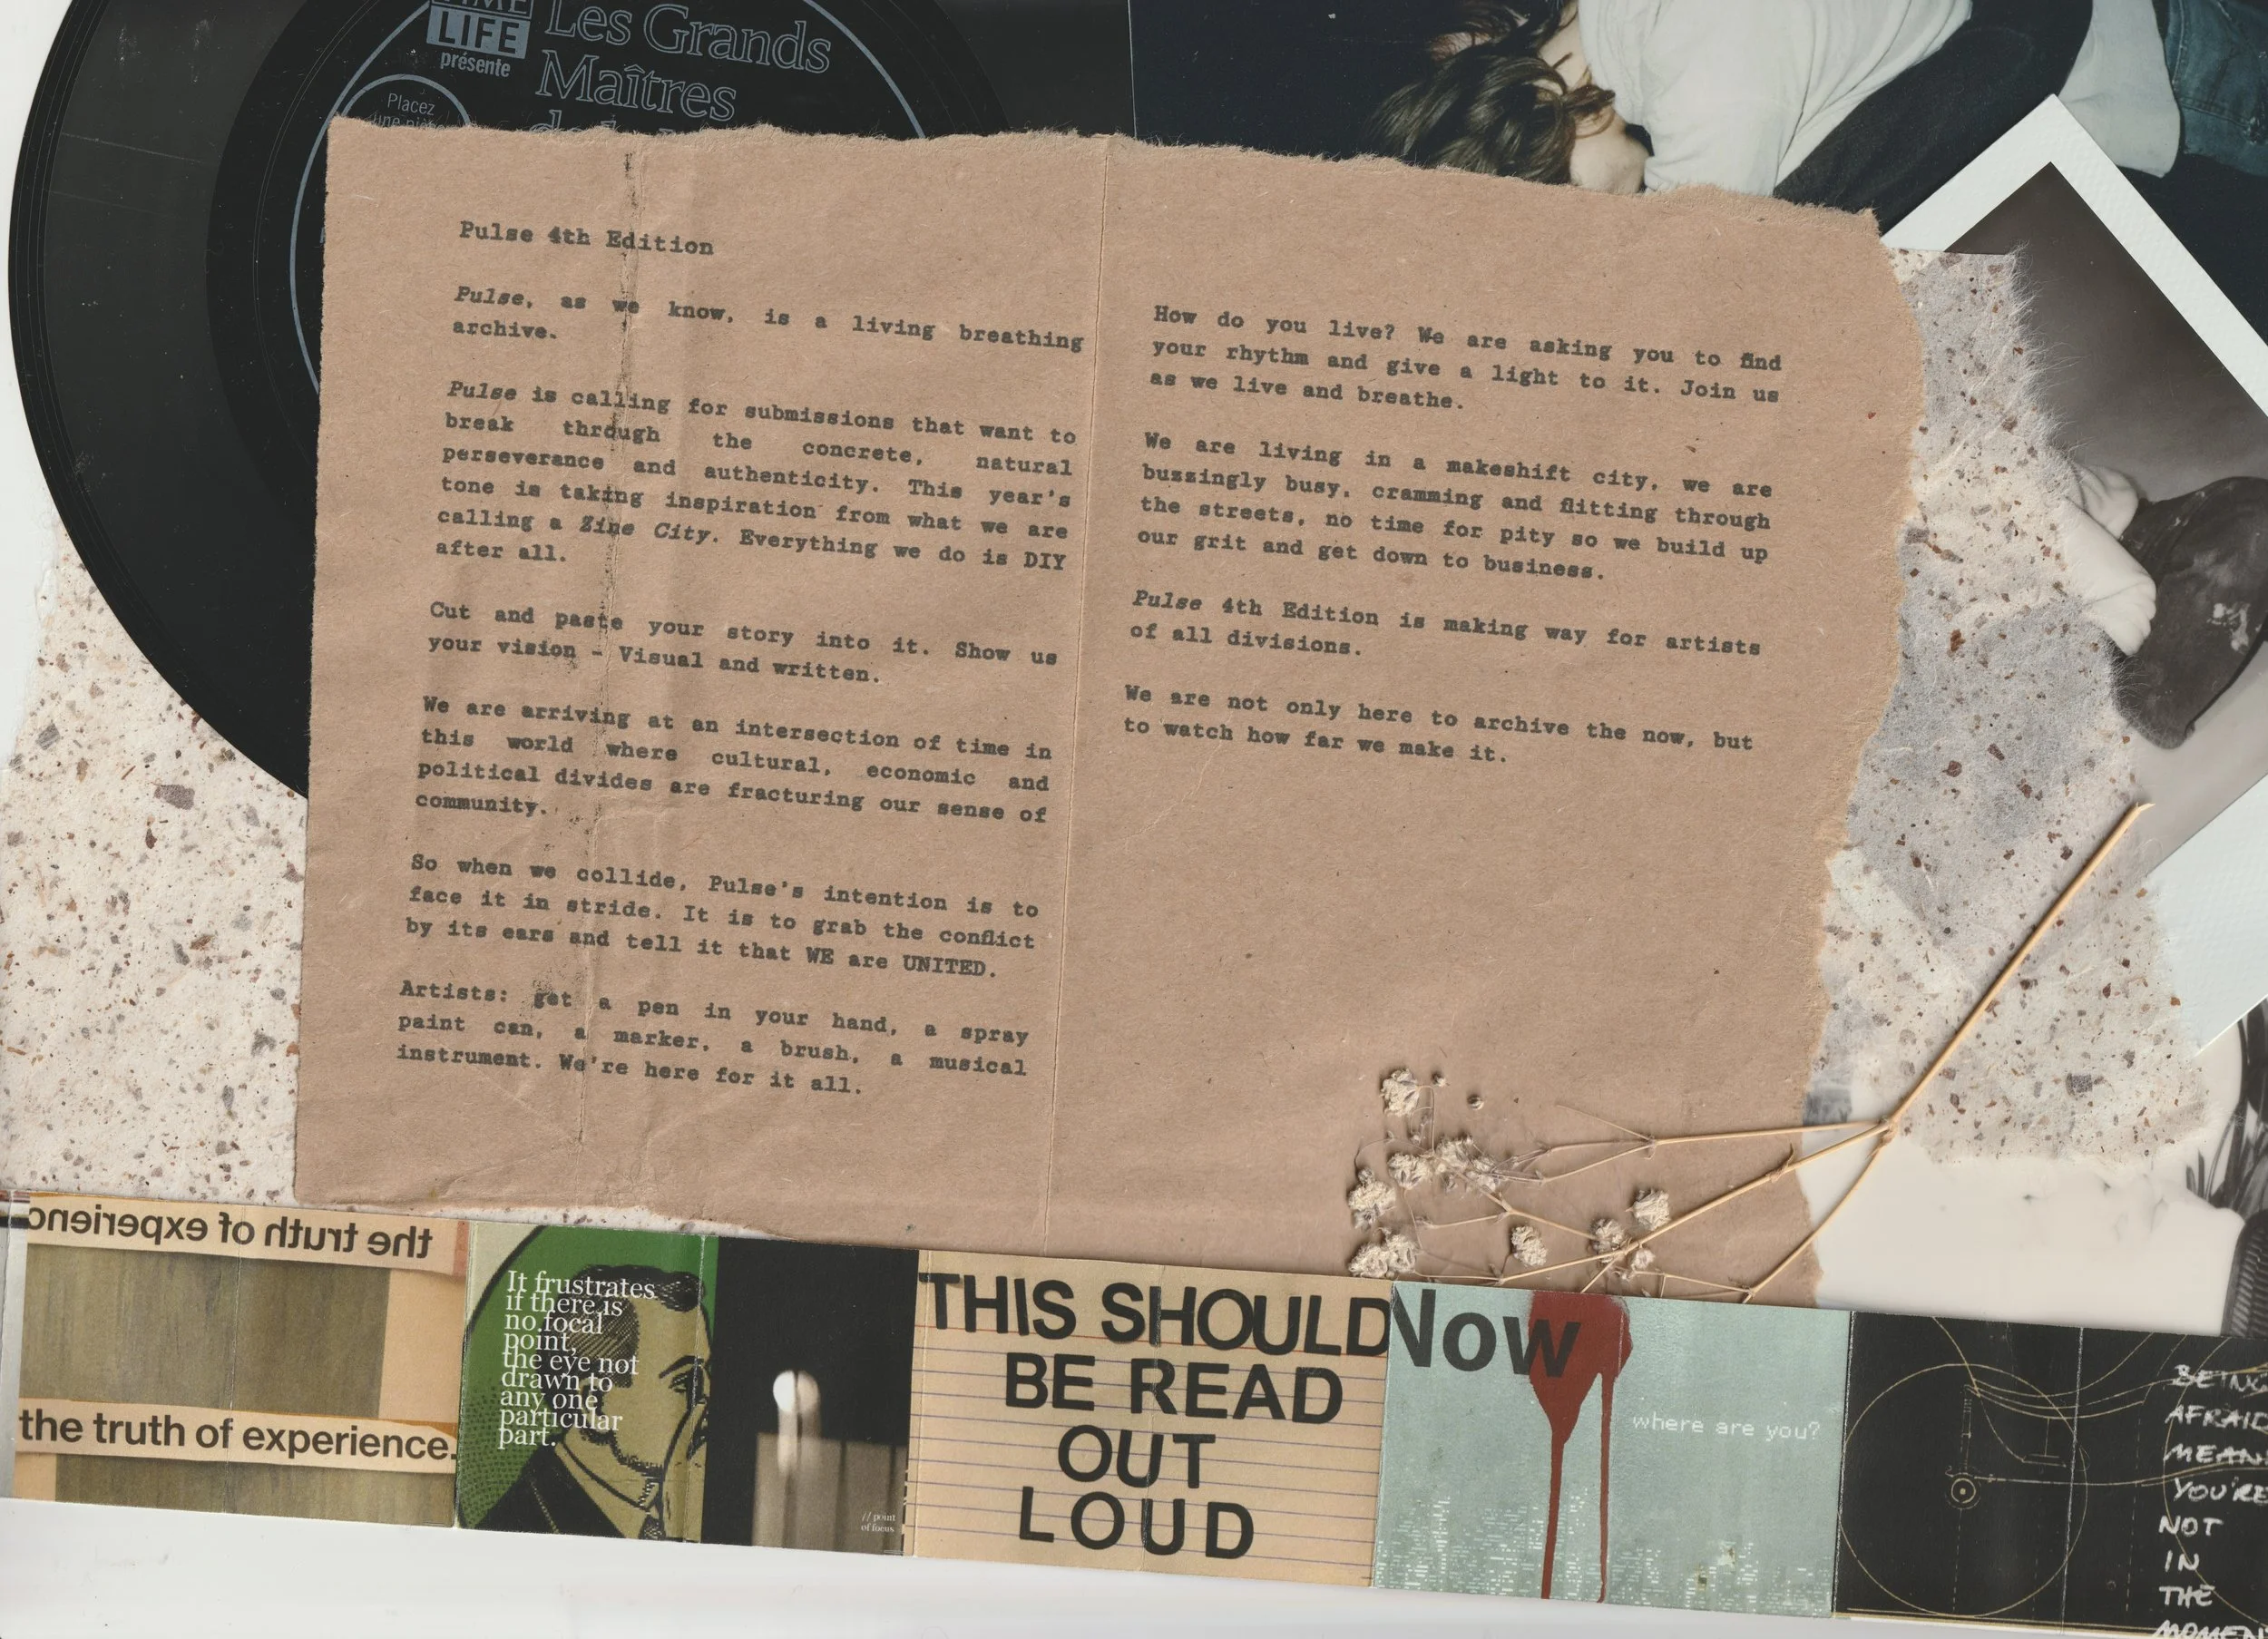 LIFE
présente
Les Grands
Maîtres
Placez
Pulse 4th Edition
Pulse, as we know, is a living breathing
archive.
Pulse is calling for submissions that want to
break through the concrete, natural
perseverance and authenticity. This year's
tone is taking inspiration from what we are
calling a Zine City. Everything we do is DIY
after all.
Cut and paste your story into it. Show us
your vision - Visual and written.
We are arriving at an intersection of time in
this world where cultural, economic and
political divides are fracturing our sense of
community.
So when we collide, Pulse's intention is to
face it in stride. It is to grab the conflict
by its ears and tell it that WE are UNITED.
Artists: get a pen in your hand, a spray
paint can, a marker, a brush, a musical
instrument. We're here for it all.
How do you live? We are asking you to find
your rhythm and give a light to it. Join us
as we live and breathe.
We are living in a makeshift city, we are
buzzingly busy, cramming and flitting through
the streets, no time for pity so we build up
our grit and get down to business.
Pulse 4th Edition is making way for artists
of all divisions.
We are not only here to archive the now, but
to watch how far we make it.
the truth of experienc
the truth of experience.
It frustrates
if there is
no focal
point,
the eye not
drawn to
any one
particular
part.
// point
of focus
THIS SHOULD
BE READ
OUT
LOUD
Now
where are you?
BEING
AFRAID
MEAN
YOU'RE
NOT
IN
THE
MOMEN